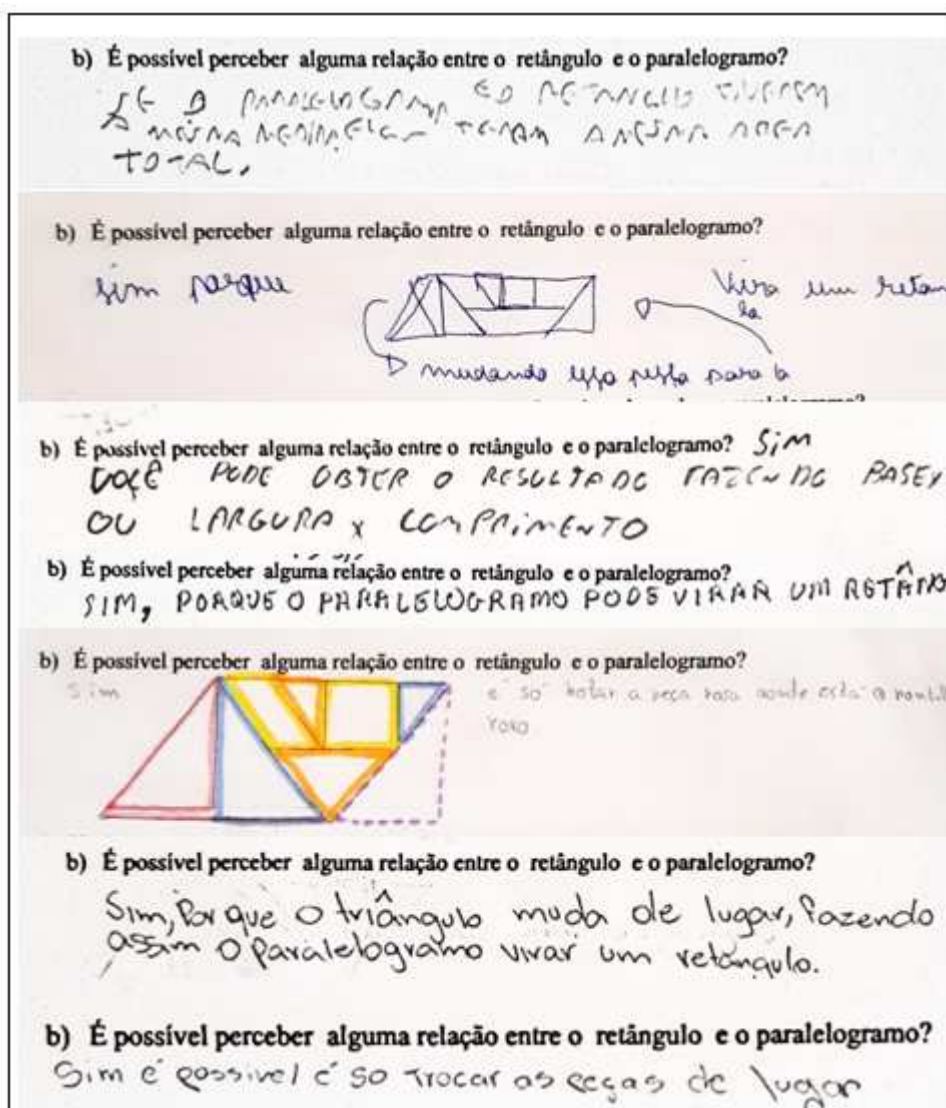 b) É possível perceber alguma relação entre o retângulo e o paralelogramo?
SE O PARALELOGRAMO E O RETANGULO TIVEREM
A MESMA MEDIDA ELES TERAM A MESMA AREA
TOTAL.
b) É possível perceber alguma relação entre o retângulo e o paralelogramo?
sim porque
Vira um retan
la
mudando essa pessa para
b) É possível perceber alguma relação entre o retângulo e o paralelogramo? SiM
VOCÊ PODE OBTER O RESULTADO FAZENDO BASEx
OU LARGURA x COMPRIMENTO
b) É possível perceber alguma relação entre o retângulo e o paralelogramo?
SIM, PORQUE O PARALELOGRAMO PODE VIRAR UM RETÂN
b) É possível perceber alguma relação entre o retângulo e o paralelogramo?
Sim
é só botar a peça rosa aonde está a
roxo
b) É possível perceber alguma relação entre o retângulo e o paralelogramo?
Sim, Por que o triângulo muda de lugar, fazendo
assim o paralelogramo virar um retângulo.
b) É possível perceber alguma relação entre o retângulo e o paralelogramo?
Sim é possivel é so trocar as peças de lugar